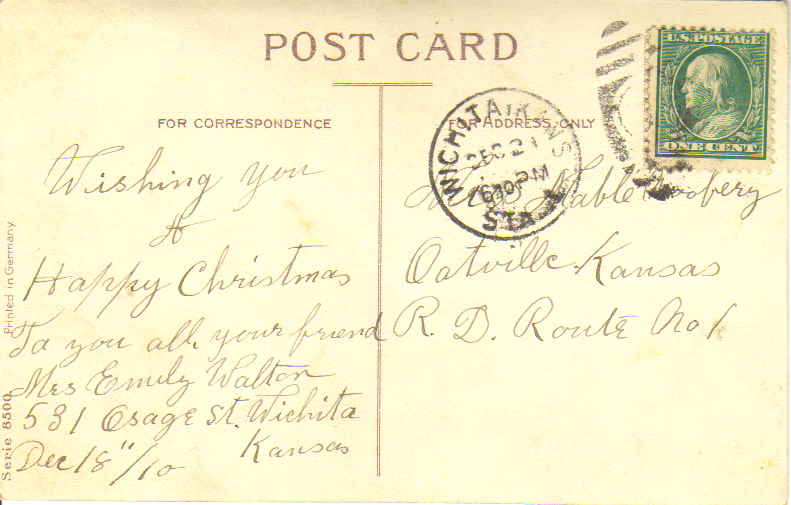 POST CARD
FOR CORRESPONDENCE
FOR ADDRESS ONLY
U.S. POSTAGE
ONE CENT
WICHITA, KANS
DEC 21
630PM
STA. A
Wishing you
A
Happy Christmas
To you all your friend
Mrs Emily Walton
531 Osage St. Wichita
Kansas
Dec 18"/10
Mable
Oatville Kansas
R. D. Route No 1
Printed in Germany
Serie 8500